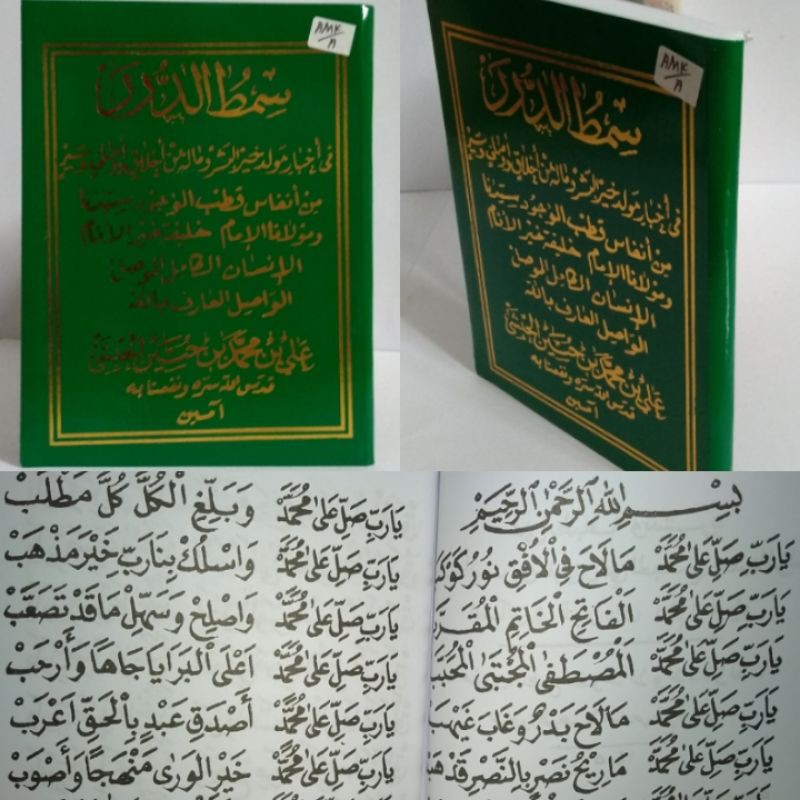 AMK
A
سِمْطُ الدُّرَرِ
في أخبار مولد خير البشر وماله من أخلاق وأوصاف وسير
من أنفاس قطب الوجود سيدنا
ومولانا الإمام خليفة خير الأنام
الإنسان الكامل الموصل
الواصل العارف بالله
علي بن محمد بن حسين الحبشي
قدس الله سره ونفعنا به
آمين
AMK
A
سِمْطُ الدُّرَرِ
في أخبار مولد خير البشر وماله من أخلاق وأوصاف وسير
من أنفاس قطب الوجود سيدنا
ومولانا الإمام خليفة خير الأنام
الإنسان الكامل الموصل
الواصل العارف بالله
علي بن محمد بن حسين الحبشي
قدس الله سره ونفعنا به
آمين
بِسْمِ اللهِ الرَّحْمٰنِ الرَّحِيْمِ
يَارَبِّ صَلِّ عَلىٰ مُحَمَّدْ مَالَاحَ فِي الْاُفْقِ نُوْرُ
يَارَبِّ صَلِّ عَلىٰ مُحَمَّدْ اَلْفَاتِحِ الْخَاتِمِ
يَارَبِّ صَلِّ عَلىٰ مُحَمَّدْ اَلْمُصْطَفَى الْمُجْتَبَى
يَارَبِّ صَلِّ عَلىٰ مُحَمَّدْ مَالَاحَ بَدْرٌ وَغَابَ
يَارَبِّ صَلِّ عَلىٰ مُحَمَّدْ مَارِيْحُ نَصْرٍ بِالنَّصْرِ
يَارَبِّ صَلِّ عَلىٰ مُحَمَّدْ وَبَلِّغِ الْكُلَّ كُلَّ مَطْلَبْ
يَارَبِّ صَلِّ عَلىٰ مُحَمَّدْ وَاسْلُكْ بِنَارَبِّ خَيْرَ مَذْهَبْ
يَارَبِّ صَلِّ عَلىٰ مُحَمَّدْ وَاصْلِحْ وَسَهِّلْ مَاقَدْ تَصَعَّبْ
يَارَبِّ صَلِّ عَلىٰ مُحَمَّدْ اَعْلَى الْبَرَايَا جَاهًا وَأَرْحَبْ
يَارَبِّ صَلِّ عَلىٰ مُحَمَّدْ أَصْدَقِ عَبْدٍ بِالْحَقِّ اَعْرَبْ
يَارَبِّ صَلِّ عَلىٰ مُحَمَّدْ خَيْرِ الْوَرىٰ مَنْهَجًا وَأَصْوَبْ